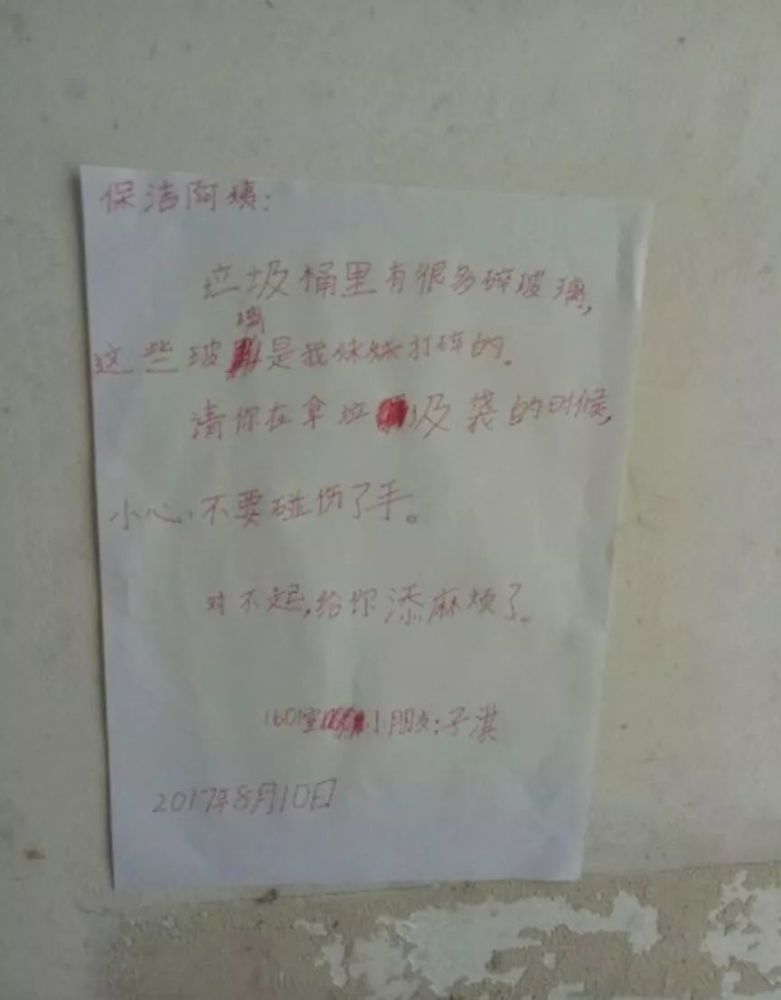 保洁阿姨：
垃圾桶里有很多碎玻璃，
这些玻璃是我妹妹打碎的。
请你在拿垃圾袋的时候，
小心、不要碰伤了手。
对不起，给你添麻烦了。
1601室小朋友：子淇
2017年8月10日